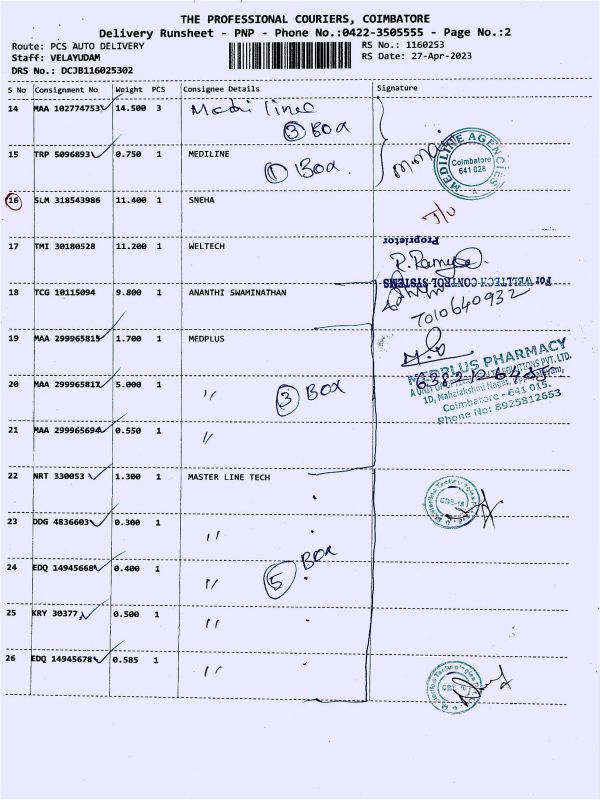 THE PROFESSIONAL COURIERS, COIMBATORE
Delivery Runsheet - PNP - Phone No.:0422-3505555 - Page No.:2
Route: PCS AUTO DELIVERY RS No.: 1160253
Staff: VELAYUDAM RS Date: 27-Apr-2023
DRS No.: DCJB116025302
S No Consignment No Weight PCS Consignee Details Signature
14 MAA 102774753 14.500 3
3 Box
15 TRP 5096893 0.750 1 MEDILINE
1 Box.
MEDILINE AGENCIES
Coimbatore
641 028
16 SLM 318543986 11.400 1 SNEHA
17 TMI 30180528 11.200 1 WELTECH
Proprietor
For WELLTECH CONTROL SYSTEMS
18 TCG 10115094 9.800 1 ANANTHI SWAMINATHAN
7010640932
19 MAA 299965815 1.700 1 MEDPLUS
MEDPLUS PHARMACY
20 MAA 299965817 5.000 1 〃
3 Box
1D, Mahalakshmi Nagar,
Coimbatore - 641 015.
Phone No: 8925812653
21 MAA 299965694 0.550 1 〃
22 NRT 330053 1.300 1 MASTER LINE TECH
23 DDG 4836603 0.300 1 〃
24 EDQ 14945668 0.400 1 〃
5 Box
25 KRY 30377 0.500 1 〃
26 EDQ 14945678 0.585 1 〃